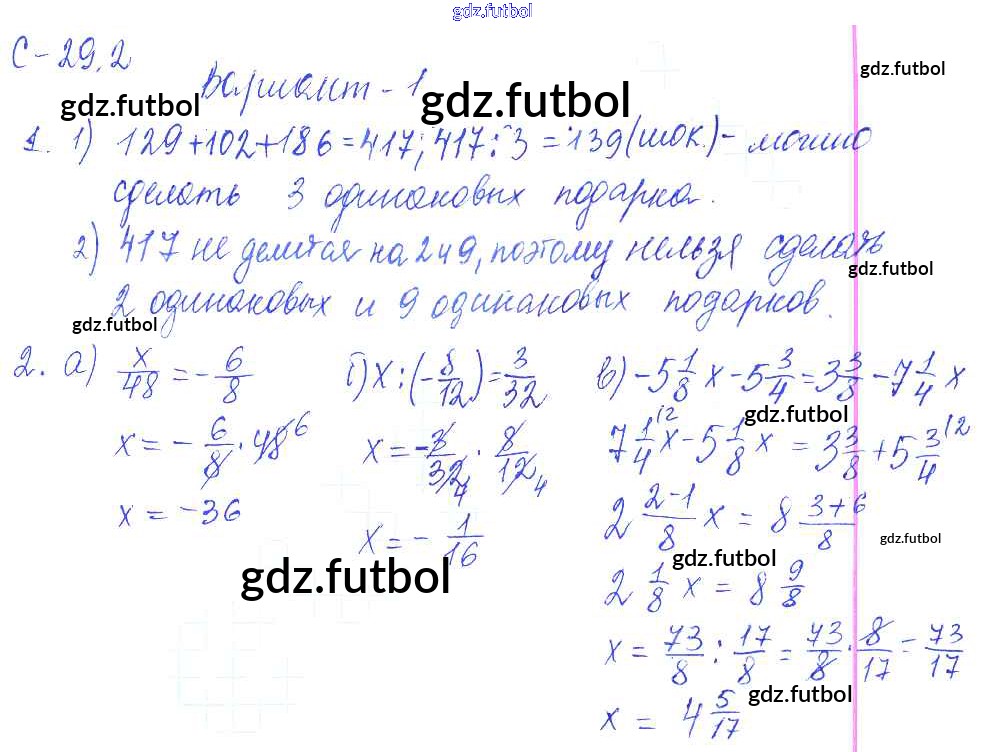 gdz.futbol
С-29.2
Вариант - 1
gdz.futbol gdz.futbol gdz.futbol
1. 1) 129+102+186=417; 417:3=139(шок.)- можно
сделать 3 одинаковых подарка.
2) 417 не делится на 2 и 9, поэтому нельзя сделать
gdz.futbol
2 одинаковых и 9 одинаковых подарков.
gdz.futbol
2. а) x/48 = - 6/8
x = - 6/8 · 48 6
x = -36
б) x : (- 8/12) = 3/32
x = - 3/32 4 · 8/12 4
x = - 1/16
gdz.futbol
в) -5 1/8 x - 5 3/4 = 3 3/8 - 7 1/4 x
gdz.futbol
7 1/4 \2 x - 5 1/8 x = 3 3/8 + 5 3/4 \2
2 2-1/8 x = 8 3+6/8
gdz.futbol gdz.futbol
2 1/8 x = 8 9/8
x = 73/8 : 17/8 = 73/8 · 8/17 = 73/17
gdz.futbol
x = 4 5/17